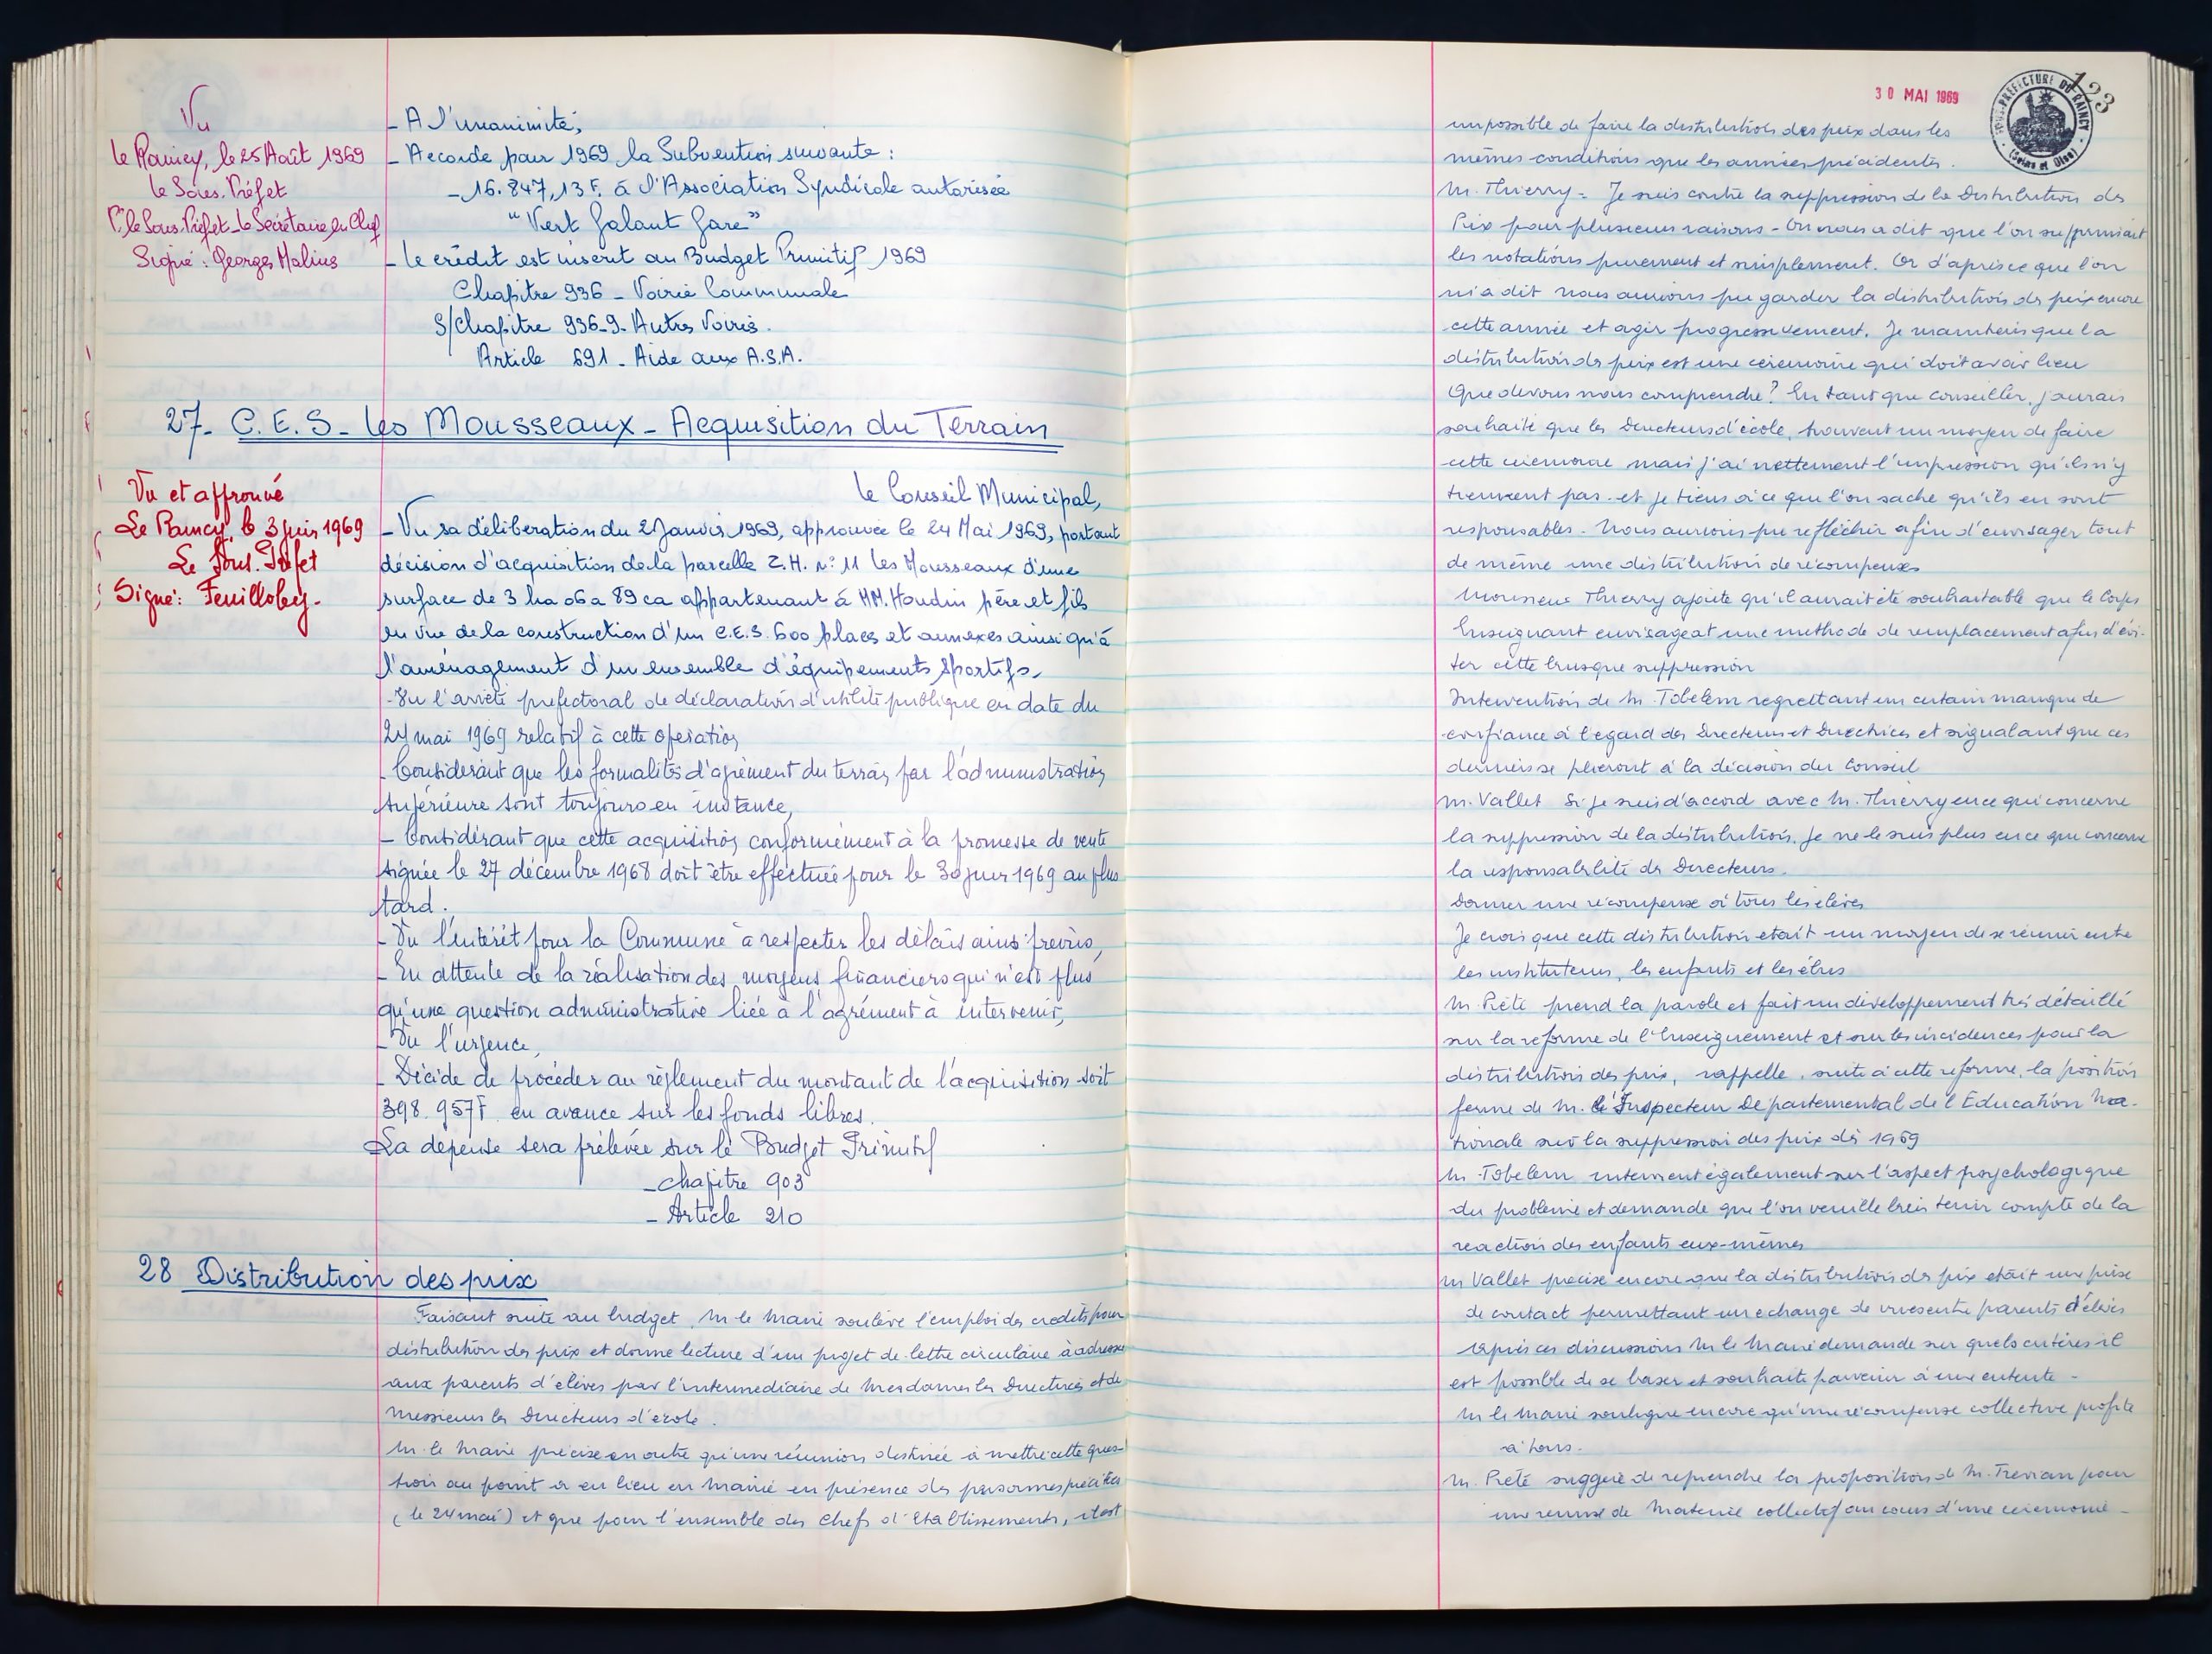 Vu
Le Raincy, le 25 Août 1969
Le Sous-Préfet
Pr le Sous-Préfet - Le Secrétaire en Chef
Signé : Georges Malius
- A l'unanimité,
- Accorde pour 1969 la Subvention suivante :
- 16.847,13 F. à l'Association Syndicale autorisée
"Vert Galant Gare"
- Le crédit est inscrit au Budget Primitif 1969
Chapitre 936 - Voirie Communale
S/Chapitre 936-9 - Autres Voiries.
Article 691 - Aide aux A.S.A.
27- C.E.S- Les Mousseaux - Acquisition du Terrain
Vu et approuvé
Le Raincy, le 3 juin 1969
Le Sous-Préfet
Signé: Feuilloley.
Le Conseil Municipal,
- Vu sa délibération du 2 Janvier 1969, approuvée le 24 Mai 1969, portant
décision d'acquisition de la parcelle Z.H. n° 11 Les Mousseaux d'une
surface de 3 ha 06 a 89 ca appartenant à MM. Houdin père et fils
en vue de la construction d'un C.E.S. 600 places et annexes ainsi qu'à
l'aménagement d'un ensemble d'équipements sportifs,
- Vu l'arrêté préfectoral de déclaration d'utilité publique en date du
24 mai 1969 relatif à cette opération,
- Considérant que les formalités d'agrément du terrain par l'administration
supérieure sont toujours en instance,
- Considérant que cette acquisition conformément à la promesse de vente
signée le 27 décembre 1968 doit être effectuée pour le 30 juin 1969 au plus
tard.
- Vu l'intérêt pour la Commune à respecter les délais ainsi prévus,
- En attente de la réalisation des moyens financiers qui n'est plus
qu'une question administrative liée à l'agrément à intervenir,
- Vu l'urgence,
- Décide de procéder au règlement du montant de l'acquisition soit
398.957F en avance sur les fonds libres.
La dépense sera prélevée sur le Budget Primitif
- chapitre 903
- Article 210
28 Distribution des prix
Faisant suite au budget, M le Maire soulève l'emploi des crédits pour
distribution des prix et donne lecture d'un projet de lettre circulaire à adresser
aux parents d'élèves par l'intermédiaire de Mesdames les Directrices et de
Messieurs les Directeurs d'école.
M. le Maire précise en outre qu'une réunion destinée à mettre cette ques-
tion au point a eu lieu en Mairie en présence des personnes précitées
(le 24 mai) et que pour l'ensemble des chefs d'Etablissements, il est
30 MAI 1969
123
SOUS-PREFECTURE DU RAINCY
(Seine et Oise)
impossible de faire la distribution des prix dans les
mêmes conditions que les années précédentes.
M. Thierry - Je suis contre la suppression de la Distribution des
Prix pour plusieurs raisons - On nous a dit que l'on supprimait
les notations purement et simplement. Or d'après ce que l'on
m'a dit nous aurions pu garder la distribution des prix encore
cette année et agir progressivement. Je maintiens que la
distribution des prix est une cérémonie qui doit avoir lieu
Que devons nous comprendre ? En tant que conseiller, j'aurais
souhaité que les Directeurs d'école, trouvent un moyen de faire
cette cérémonie mais j'ai nettement l'impression qu'ils n'y
tiennent pas. et je tiens à ce que l'on sache qu'ils en sont
responsables. Nous aurions pu réfléchir afin d'envisager tout
de même une distribution de récompenses
Monsieur Thierry ajoute qu'il aurait été souhaitable que le Corps
Enseignant envisageat une methode de remplacement afin d'évi-
ter cette brusque suppression
Intervention de M. Tobelem regrettant un certain manque de
confiance à l'egard des Directeurs et Directrices et signalant que ces
derniers se plieront à la décision du Conseil
M. Vallet Si je suis d'accord avec M. Thierry en ce qui concerne
la suppression de la distribution. Je ne le suis plus en ce qui concerne
la responsabilité des Directeurs.
Donner une récompense à tous les élèves
Je crois que cette distribution etait un moyen de se réunir entre
les instituteurs, les enfants et les élus
M. Piété prend la parole et fait un développement très détaillé
sur la reforme de l'Enseignement et sur les incidences pour la
distribution des prix, rappelle, suite à cette reforme, la position
ferme de M. l'Inspecteur Départemental de l'Education Na-
tionale sur la suppression des prix dès 1969
M. Tobelem intervient également sur l'aspect psychologique
du problème et demande que l'on veuille bien tenir compte de la
reaction des enfants eux-mêmes
M Vallet précise encore que la distribution des prix etait une prise
de contact permettant un echange de vues entre parents d'élèves
Après ces discussions M le Maire demande sur quels critères il
est possible de se baser et souhaite parvenir à une entente -
M le Maire souligne encore qu'une récompense collective profite
à tous.
M. Piété suggère de reprendre la proposition de M. Trevian pour
une remise de Matériel collectif au cours d'une cérémonie -